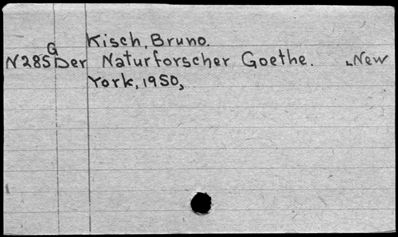 Kisch, Bruno.
G
N285 Der Naturforscher Goethe. [New
York, 1950]